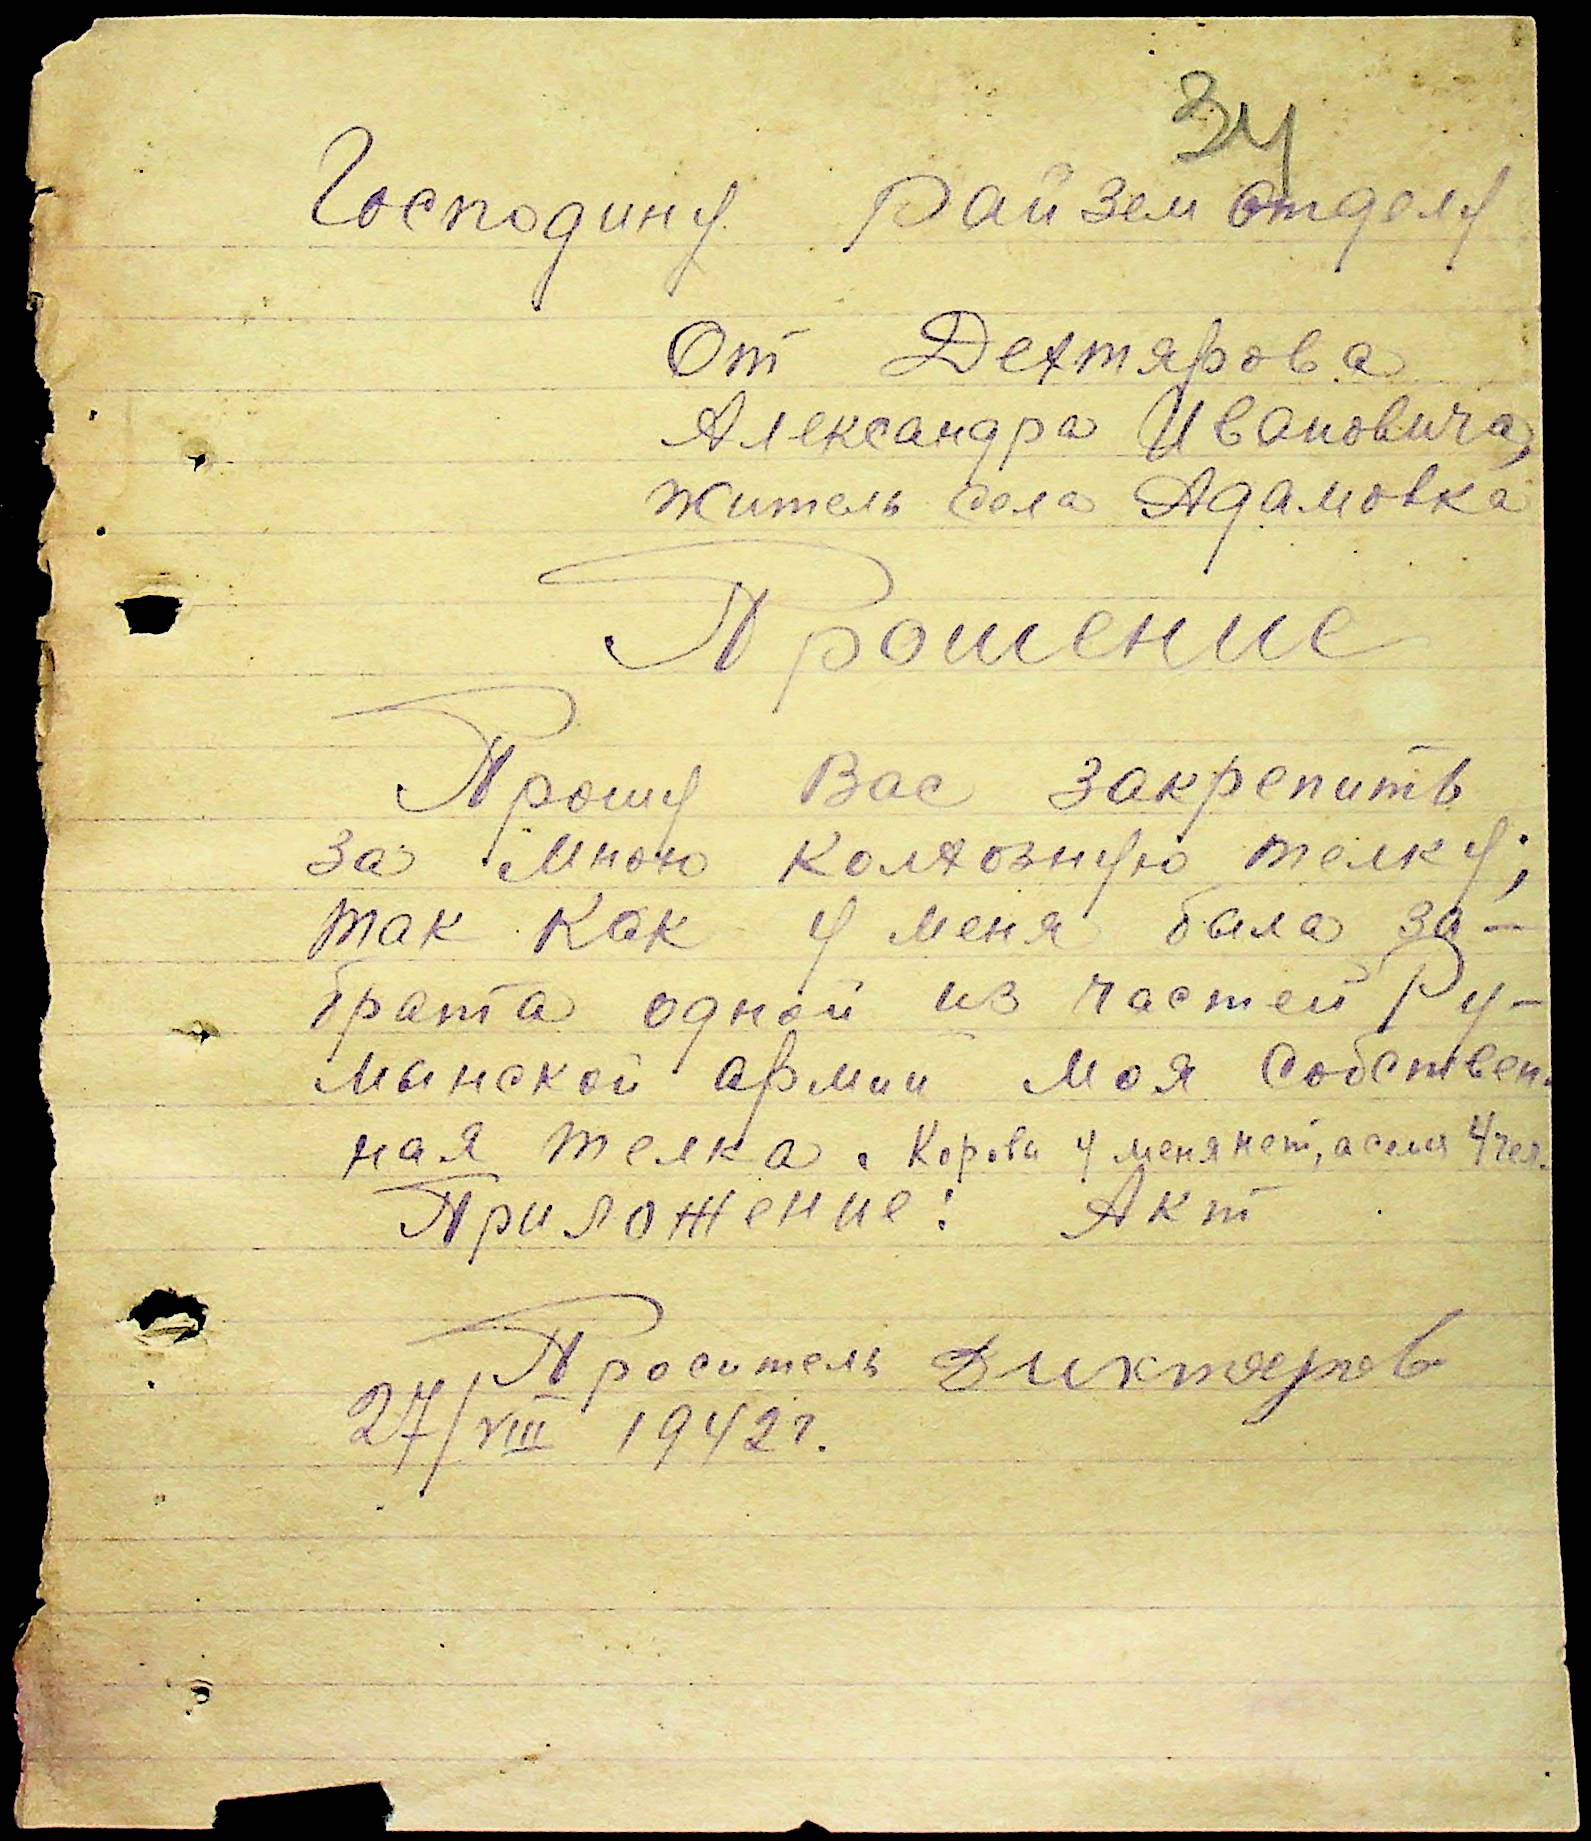 34
Господину Райземотделу
От Дехтярова
Александра Ивановича,
житель села Адамовка
Прошение
Прошу Вас закрепить
за мною колхозную телку;
так как у меня была за-
брата одной из частей Ру-
мынской армии моя собствен-
ная телка. Коровы у меня нет, а семя 4 чел.
Приложение: Акт
Проситель Дихтяров
27/VIII 1942 г.